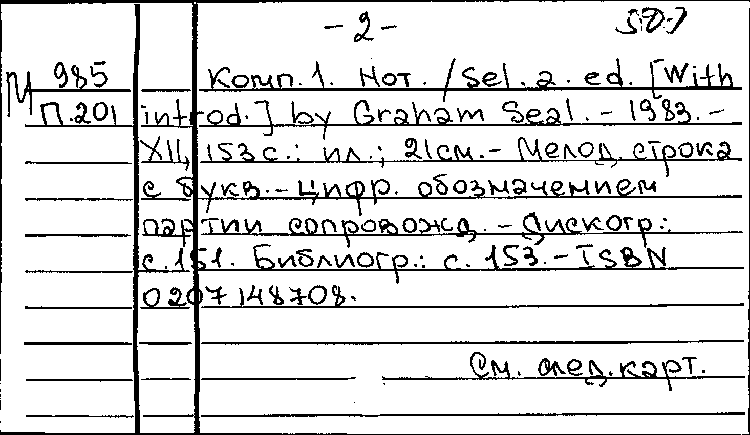 - 2 -
М 985 Комп. 1. Нот. / Sel. a. ed. [With
П.201 introd.] by Graham Seal. - 1983. -
XII, 153 с.: ил.; 21 см. - Мелод. строка
с букв.-цифр. обозначением
партии сопровожд. - Дискогр.:
с. 151. Библиогр.: с. 153. - ISBN
0207148708.
См. след. карт.